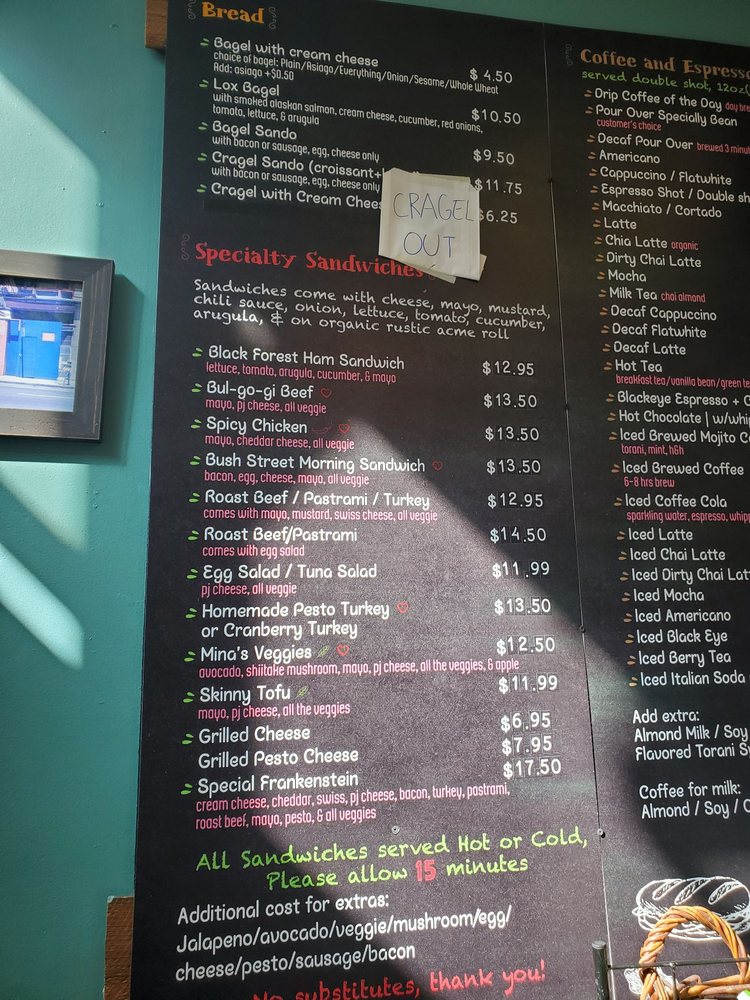 Bread
Bagel with cream cheese
choice of bagel: Plain/Asiago/Everything/Onion/Sesame/Whole Wheat
$ 4.50
Add: asiago +$0.50
Lox Bagel
with smoked alaskan salmon, cream cheese, cucumber, red onions,
$10.50
tomato, lettuce, & arugula
Bagel Sando
with bacon or sausage, egg, cheese only
$9.50
Cragel Sando (croissant+
with bacon or sausage, egg, cheese only
$11.75
Cragel with Cream Chees
$6.25
CRAGEL
OUT
Specialty Sandwiches
Sandwiches come with cheese, mayo, mustard,
chili sauce, onion, lettuce, tomato, cucumber,
arugula, & on organic rustic acme roll
Black Forest Ham Sandwich $12.95
lettuce, tomato, arugula, cucumber, & mayo
Bul-go-gi Beef $13.50
mayo, pj cheese, all veggie
Spicy Chicken $13.50
mayo, cheddar cheese, all veggie
Bush Street Morning Sandwich $13.50
bacon, egg, cheese, mayo, all veggie
Roast Beef / Pastrami / Turkey $12.95
comes with mayo, mustard, swiss cheese, all veggie
Roast Beef/Pastrami $14.50
comes with egg salad
Egg Salad / Tuna Salad $11.99
pj cheese, all veggie
Homemade Pesto Turkey $13.50
or Cranberry Turkey
Mina's Veggies $12.50
avocado, shiitake mushroom, mayo, pj cheese, all the veggies, & apple
Skinny Tofu $11.99
mayo, pj cheese, all the veggies
Grilled Cheese $6.95
Grilled Pesto Cheese $7.95
Special Frankenstein $17.50
cream cheese, cheddar, swiss, pj cheese, bacon, turkey, pastrami,
roast beef, mayo, pesto, & all veggies
All Sandwiches served Hot or Cold,
Please allow 15 minutes
Additional cost for extras:
Jalapeno/avocado/veggie/mushroom/egg/
cheese/pesto/sausage/bacon
No substitutes, thank you!
Coffee and Espresso
served double shot, 12oz(
Drip Coffee of the Day day bre
Pour Over Specially Bean
customer's choice
Decaf Pour Over brewed 3 minut
Americano
Cappuccino / Flatwhite
Espresso Shot / Double sh
Macchiato / Cortado
Latte
Chia Latte organic
Dirty Chai Latte
Mocha
Milk Tea chai almond
Decaf Cappuccino
Decaf Flatwhite
Decaf Latte
Hot Tea
breakfast tea/vanilla bean/green te
Blackeye Espresso + C
Hot Chocolate | w/whip
Iced Brewed Mojito C
torani, mint, h&h
Iced Brewed Coffee
6-8 hrs brew
Iced Coffee Cola
sparkling water, espresso, whipp
Iced Latte
Iced Chai Latte
Iced Dirty Chai Latt
Iced Mocha
Iced Americano
Iced Black Eye
Iced Berry Tea
Iced Italian Soda
Add extra:
Almond Milk / Soy
Flavored Torani S
Coffee for milk:
Almond / Soy / C